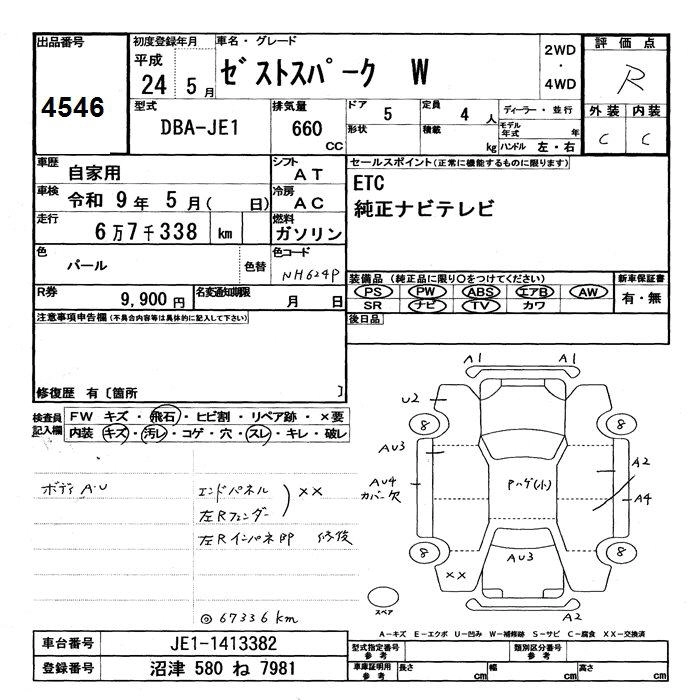 出品番号
4546
初度登録年月
平成
24 5 月
車名・グレード
ゼストスパーク W
2WD
・
4WD
評価点
R
外装 内装
C C
型式
DBA-JE1
排気量
660 CC
ドア 5
形状
定員 4 人
積載 kg
ディーラー・並行
モデル年式 年
ハンドル 左・右
車歴 自家用
シフト AT
車検 令和 9 年 5 月( 日)
冷房 AC
走行 6万7千338 km
燃料 ガソリン
色 パール
色替
色コード NH624P
R券 9,900 円
名変通知期限 月 日
セールスポイント(正常に機能するものに限ります)
ETC
純正ナビテレビ
装備品 (純正品に限り○をつけてください)
PS PW ABS エアB AW
SR ナビ TV カワ
新車保証書
有・無
後日品
注意事項申告欄(不具合内容等は具体的に記入して下さい)
修復歴 有〔箇所 〕
検査員記入欄
FW キズ・飛石・ヒビ割・リペア跡・×要
内装 キズ・汚レ・コゲ・穴・スレ・キレ・破レ
ボディ A・U
エンドパネル
左Rフェンダー
××
左Rインパネ即 修後
◎67336km
A1 A1
U2
8 8
AU3
AU4
カバー欠
Pハゲ(小)
A2
A4
8 8
××
AU3
A2
スペア
A-キズ E-エクボ U-凹み W-補修跡 S-サビ C-腐食 XX-交換済
車台番号 JE1-1413382
登録番号 沼津 580 ね 7981
型式指定番号
参考
類別区分番号
参考
車庫証明用
参考
長さ cm 幅 cm 高さ cm